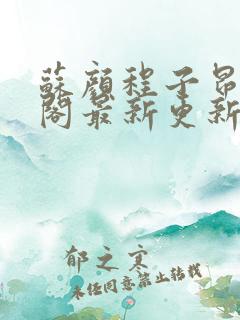 蘇顏程子昂
閣最新更新
郁之寒
未经同意禁止转载